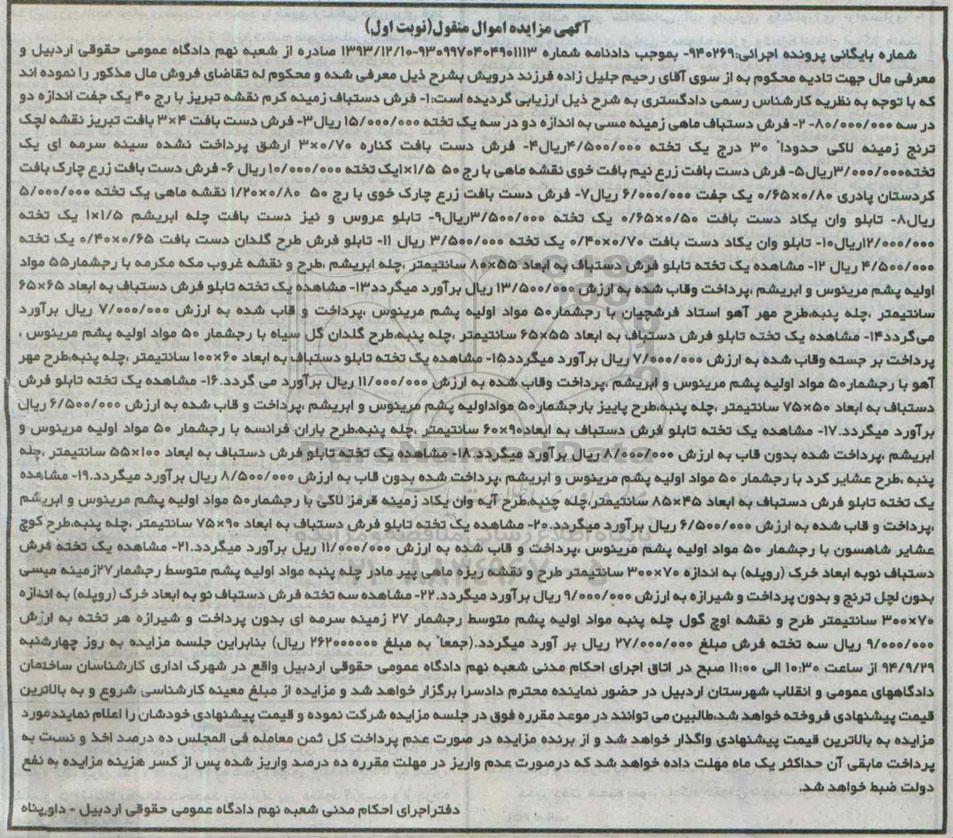 آگهی مزایده اموال منقول(نوبت اول)
شماره بایگانی پرونده اجرائی:۹۴۰۲۶۹- بموجب دادنامه شماره ۹۳۰۹۹۷۰۴۰۴۹۰۱۱۱۳-۱۳۹۳/۱۲/۱۰ صادره از شعبه نهم دادگاه عمومی حقوقی اردبیل و
معرفی مال جهت تادیه محکوم به از سوی آقای رحیم جلیل زاده فرزند درویش بشرح ذیل معرفی شده و محکوم له تقاضای فروش مال مذکور را نموده اند
که با توجه به نظریه کارشناس رسمی دادگستری به شرح ذیل ارزیابی گردیده است:۱- فرش دستباف زمینه کرم نقشه تبریز با رج ۴۰ یک جفت اندازه دو
در سه ۸۰/۰۰۰/۰۰۰- ۲- فرش دستباف ماهی زمینه مسی به اندازه دو در سه یک تخته ۱۵/۰۰۰/۰۰۰ ریال۳- فرش دست بافت ۴×۳ بافت تبریز نقشه لچک
ترنج زمینه لاکی حدودا" ۳۰ درج یک تخته ۴/۵۰۰/۰۰۰ریال۴- فرش دست بافت کناره ۰/۷۰×۳ ارشق پرداخت نشده سینه سرمه ای یک
تخته۳/۰۰۰/۰۰۰ریال۵- فرش دست بافت زرع نیم بافت خوی نقشه ماهی با رج ۵۰ ۱/۵×۱یک تخته ۱۰/۰۰۰/۰۰۰ ریال ۶- فرش دست بافت زرع چارک بافت
کردستان پادری ۰/۸۰×۰/۶۵ یک جفت ۶/۰۰۰/۰۰۰ ریال۷- فرش دست بافت زرع چارک خوی با رج ۵۰ ۰/۸۰×۱/۲۰ نقشه ماهی یک تخته ۵/۰۰۰/۰۰۰
ریال۸- تابلو وان یکاد دست بافت ۰/۵۰×۰/۶۵ یک تخته ۳/۵۰۰/۰۰۰ریال۹- تابلو عروس و نیز دست بافت چله ابریشم ۱/۵×۱ یک تخته
۱۲/۰۰۰/۰۰۰ریال۱۰- تابلو وان یکاد دست بافت ۰/۷۰×۰/۴۰ یک تخته ۳/۵۰۰/۰۰۰ ریال ۱۱- تابلو فرش طرح گلدان دست بافت ۰/۶۵×۰/۴۰ یک تخته
۴/۵۰۰/۰۰۰ ریال ۱۲- مشاهده یک تخته تابلو فرش دستباف به ابعاد ۵۵×۸۰ سانتیمتر ،چله ابریشم ،طرح و نقشه غروب مکه مکرمه با رجشمار۵۵ مواد
اولیه پشم مرینوس و ابریشم ،پرداخت وقاب شده به ارزش ۱۳/۵۰۰/۰۰۰ ریال برآورد میگردد۱۳- مشاهده یک تخته تابلو فرش دستباف به ابعاد ۶۵×۶۵
سانتیمتر ،چله پنبه،طرح مهر آهو استاد فرشچیان با رجشمار۵۰ مواد اولیه پشم مرینوس ،پرداخت و قاب شده به ارزش ۷/۰۰۰/۰۰۰ ریال برآورد
می‌گردد۱۴- مشاهده یک تخته تابلو فرش دستباف به ابعاد ۵۵×۶۵ سانتیمتر ،چله پنبه،طرح گلدان گل سیاه با رجشمار ۵۰ مواد اولیه پشم مرینوس ،
پرداخت بر جسته وقاب شده به ارزش ۷/۰۰۰/۰۰۰ ریال برآورد میگردد۱۵- مشاهده یک تخته تابلو دستباف به ابعاد ۶۰×۱۰۰ سانتیمتر ،چله پنبه،طرح مهر
آهو با رجشمار۵۰ مواد اولیه پشم مرینوس و ابریشم ،پرداخت وقاب شده به ارزش ۱۱/۰۰۰/۰۰۰ ریال برآورد می گردد.۱۶- مشاهده یک تخته تابلو فرش
دستباف به ابعاد ۵۰×۷۵ سانتیمتر ،چله پنبه،طرح پاییز بارجشمار۵۰ مواداولیه پشم مرینوس و ابریشم ،پرداخت و قاب شده به ارزش ۶/۵۰۰/۰۰۰ ریال
برآورد میگردد.۱۷- مشاهده یک تخته تابلو فرش دستباف به ابعاد۹۰×۶۰ سانتیمتر ،چله پنبه،طرح باران فرانسه با رجشمار ۵۰ مواد اولیه مرینوس و
ابریشم ،پرداخت شده بدون قاب به ارزش ۸/۰۰۰/۰۰۰ ریال برآورد میگردد.۱۸- مشاهده یک تخته تابلو فرش دستباف به ابعاد ۱۰۰×۵۵ سانتیمتر ،چله
پنبه ،طرح عشایر کرد با رجشمار ۵۰ مواد اولیه پشم مرینوس و ابریشم ،پرداخت شده بدون قاب به ارزش ۸/۵۰۰/۰۰۰ ریال برآورد میگردد.۱۹- مشاهده
یک تخته تابلو فرش دستباف به ابعاد ۴۵×۸۵ سانتیمتر،چله چنبه،طرح آیه وان یکاد زمینه قرمز لاکی با رجشمار ۵۰ مواد اولیه پشم مرینوس و ابریشم
،پرداخت و قاب شده به ارزش ۶/۵۰۰/۰۰۰ ریال برآورد میگردد.۲۰- مشاهده یک تخته تابلو فرش دستباف به ابعاد ۹۰×۷۵ سانتیمتر ،چله پنبه،طرح کوچ
عشایر شاهسون با رجشمار ۵۰ مواد اولیه پشم مرینوس ،پرداخت و قاب شده به ارزش ۱۱/۰۰۰/۰۰۰ ریل برآورد میگردد.۲۱- مشاهده یک تخته فرش
دستباف نوبه ابعاد خرک (روپله) به اندازه ۷۰×۳۰۰ سانتیمتر طرح و نقشه ریزه ماهی پیر مادر چله پنبه مواد اولیه پشم متوسط رجشمار۲۷زمینه مبسی
بدون لچل ترنج و بدون پرداخت و شیرازه به ارزش ۹/۰۰۰/۰۰۰ ریال برآورد میگردد.۲۲- مشاهده سه تخته فرش دستباف نو به ابعاد خرک (روپله) به اندازه
۷۰×۳۰۰ سانتیمتر طرح و نقشه اوچ گول چله پنبه مواد اولیه پشم متوسط رجشمار ۲۷ زمینه سرمه ای بدون پرداخت و شیرازه هر تخته به ارزش
۹/۰۰۰/۰۰۰ ریال سه تخته فرش مبلغ ۲۷/۰۰۰/۰۰۰ ریال بر آورد میگردد.(جمعا" به مبلغ ۲۶۲۰۰۰۰۰۰ ریال) بنابراین جلسه مزایده به روز چهارشنبه
۹۴/۹/۲۹ از ساعت ۱۰:۳۰ الی ۱۱:۰۰ صبح در اتاق اجرای احکام مدنی شعبه نهم دادگاه عمومی حقوقی اردبیل واقع در شهرک اداری کارشناسان ساختمان
دادگاههای عمومی و انقلاب شهرستان اردبیل در حضور نماینده محترم دادسرا برگزار خواهد شد و مزایده از مبلغ معینه کارشناسی شروع و به بالاترین
قیمت پیشنهادی فروخته خواهد شد،طالبین می توانند در موعد مقرره فوق در جلسه مزایده شرکت نموده و قیمت پیشنهادی خودشان را اعلام نمایندمورد
مزایده به بالاترین قیمت پیشنهادی واگذار خواهد شد و از برنده مزایده در صورت عدم پرداخت کل ثمن معامله فی المجلس ده درصد اخذ و نسبت به
پرداخت مابقی آن حداکثر یک ماه مهلت داده خواهد شد که درصورت عدم واریز در مهلت مقرره ده درصد واریز شده پس از کسر هزینه مزایده به نفع
دولت ضبط خواهد شد.
دفتراجرای احکام مدنی شعبه نهم دادگاه عمومی حقوقی اردبیل - داورپناه